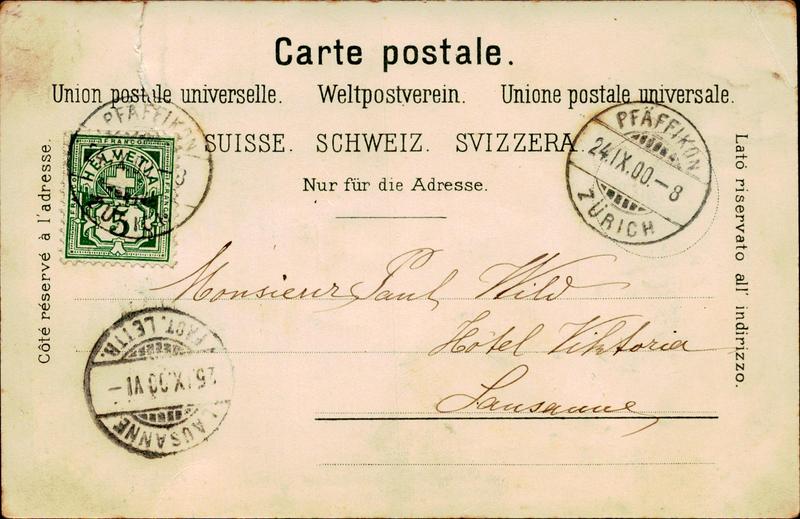 Carte postale.
Union postale universelle. Weltpostverein. Unione postale universale.
SUISSE. SCHWEIZ. SVIZZERA.
Nur für die Adresse.
Côté réservé à l'adresse.
Lató riservato all' indirizzo.
FRANCO
HELVETIA
5
PFÄFFIKON
ZÜRICH
PFÄFFIKON
24.IX.00.-8
ZÜRICH
Monsieur Paul Wild
Hôtel Viktoria
Lausanne
LAUSANNE
25.IX.00 VI-
FACT. LETTR.